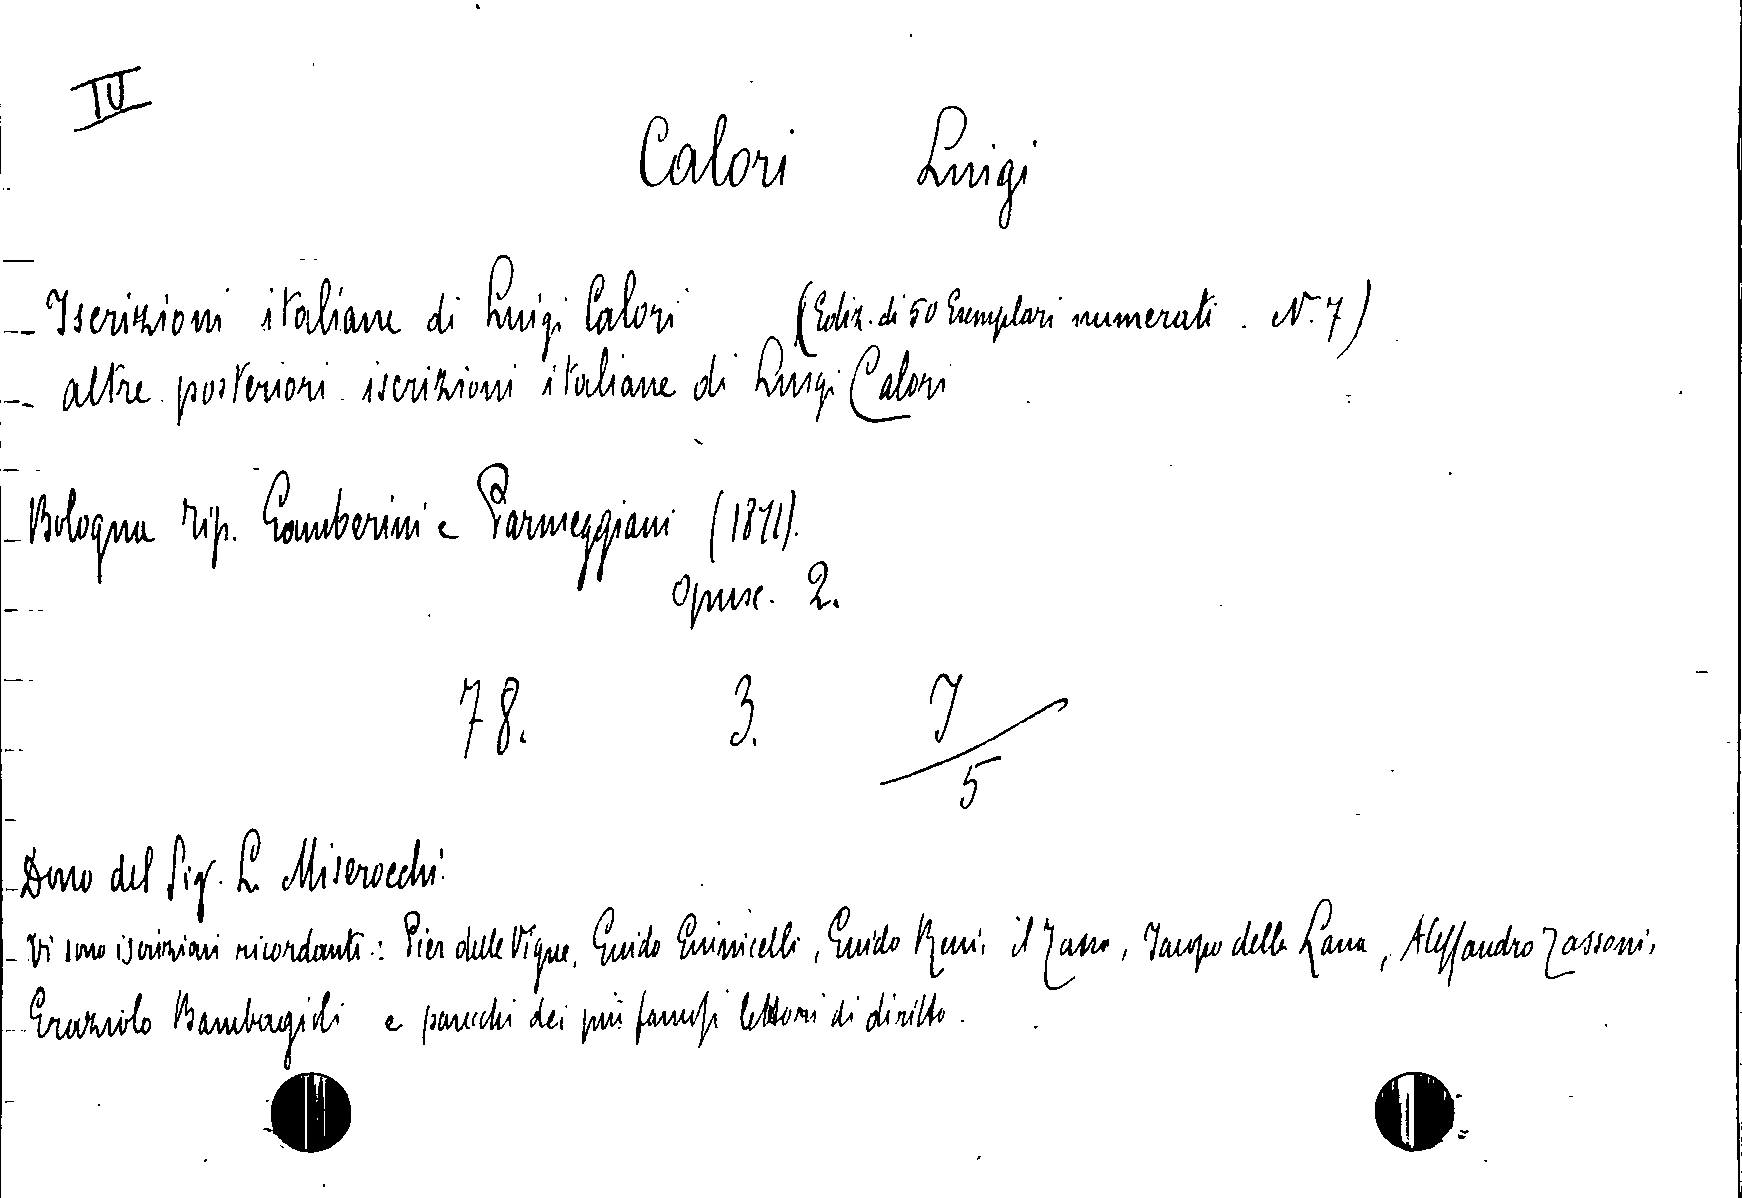 IV
Calori Luigi
Iscrizioni italiane di Luigi Calori (Ediz. di 50 Esemplari numerati. N. 7)
altre posteriori iscrizioni italiane di Luigi Calori
Bologna Tip. Gamberini e Parmeggiani (1871).
opusc. 2.
78. 3. 7/5
Dono del Sig. L. Miserocchi.
Vi sono iscrizioni ricordanti: Pier delle Vigne, Guido Guinicelli, Guido Reni, il Tasso, Jacopo della Lana, Alessandro Tassoni,
Graziolo Bambagioli e parecchi dei più famosi lettori di diritto.